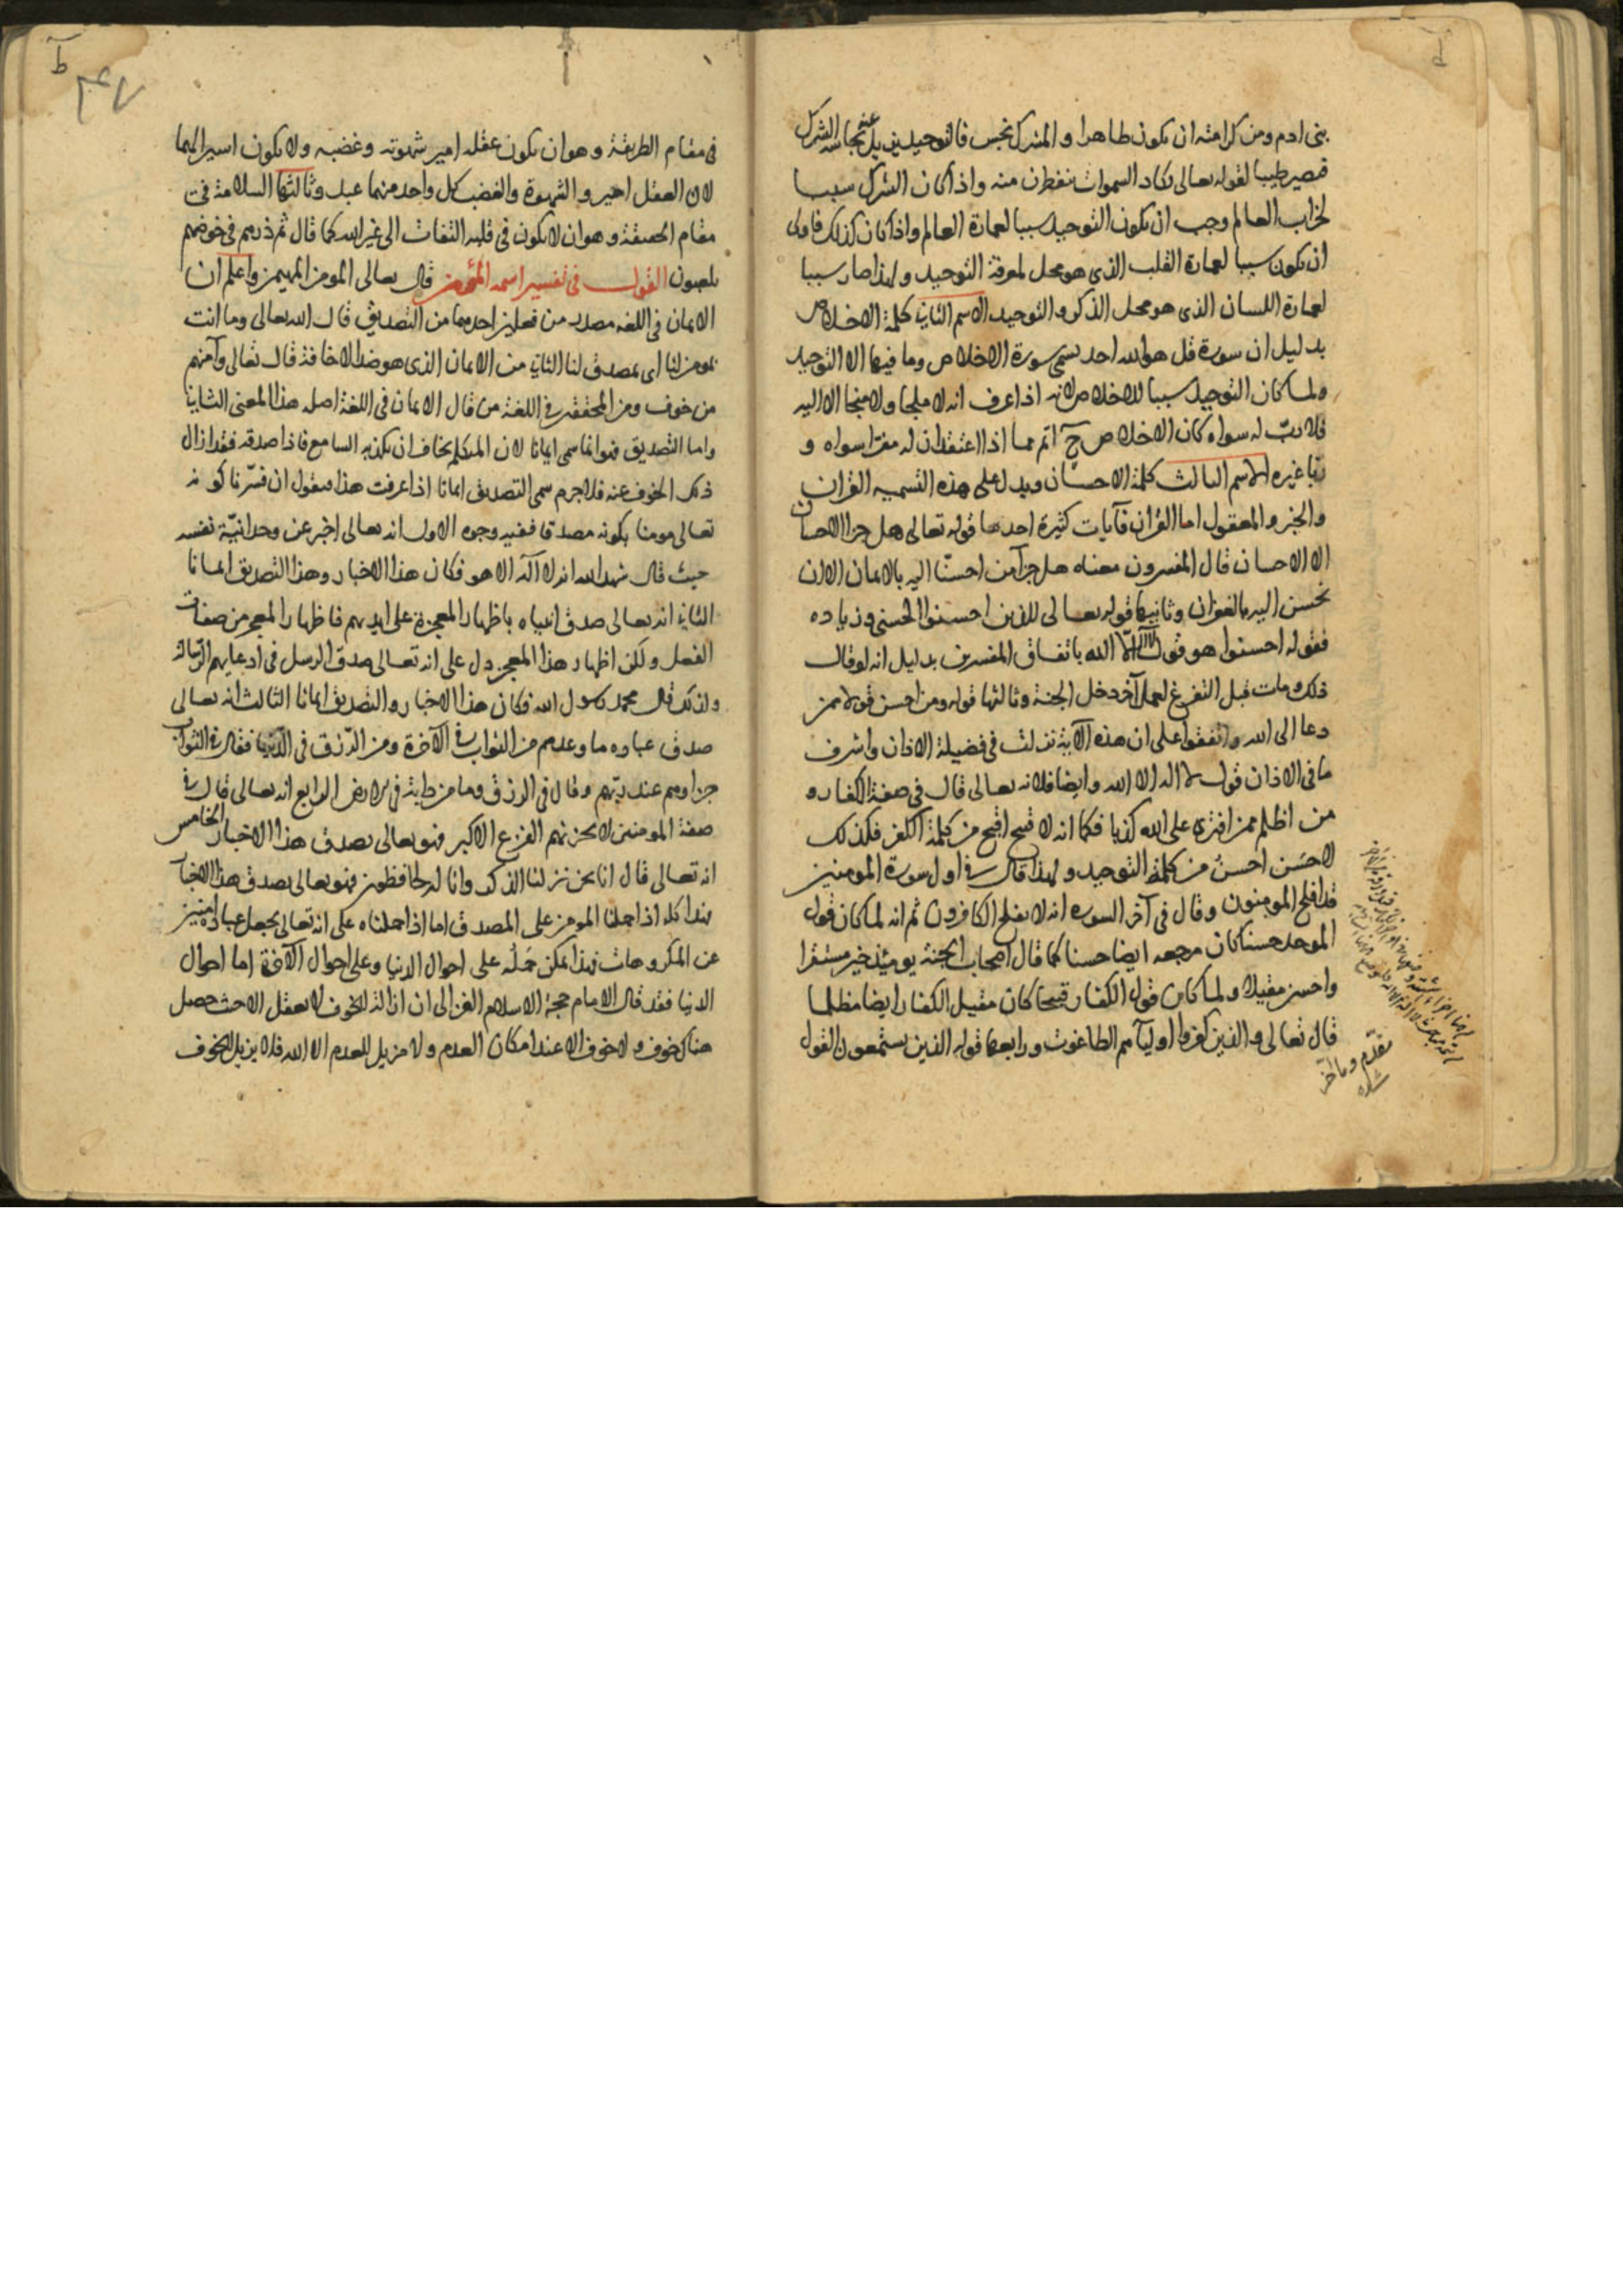 بنى ادم ومن كرامته ان يكون طاهرا و المشرك نجس فالتوحيد يزيل عنه نجاسة الشرك
فيصير طيبا لقوله تعالى تكاد السموات يتفطرن منه واذا كان الشرك سببا
لخراب العالم وجب ان يكون التوحيد سببا لعمارة العالم واذا كان كذلك فاولى
ان يكون سببا لعمارة القلب الذى هو محل لمعرفة التوحيد ولهذا صار سببا
لعمارة اللسان الذى هو محل الذكر و التوحيد الاسم الثانى كلمة الاخلاص
بدليل ان سورة قل هو الله احد يسمى سورة الاخلاص وما فيها الا التوحيد
ولما كان التوحيد سببا للاخلاص لانه اذا عرف انه لا ملجا ولا منجا الا اليه
فلا رب له سواه كان الاخلاص ح اتم مما اذا اعتقد ان له مفرا سواه و
ربا غيره الاسم الثالث كلمة الاحسان ويدل على هذه التسميه القران
والخبر و المعقول اما القران فآيات كثيرة احدها قوله تعالى هل جزا الاحسان
الا الاحسان قال المفسرون معناه هل جزآ من احسنّا اليه بالايمان الا ان
نحسن اليه بالغفران وثانيها قوله تعالى للذين احسنوا الحسنى وزياده
فقوله احسنوا هو قول لا اله الّا الله باتفاق المفسرين بدليل انه لو قال
ذلك ومات قبل التفرغ لعمل آخر دخل الجنة وثالثها قوله ومن احسن قولا ممن
دعا الى الله واتفقوا على ان هذه الآية نزلت فى فضيلة الاذان واشرف
ما فى الاذان قول لا اله الا الله وايضا فلانه تعالى قال فى صفة الكفار و
من اظلم ممن افترى على الله كذبا فكما انه لا قبيح اقبح من كلمة الكفر فكذلك
لا حسن احسن من كلمة التوحيد ولهذا قال فى اول سورة المومنين
قد افلح المومنون وقال فى آخر السوره انه لا يفلح الكافرون ثم انه لما كان قول
الموحد حسنا كان مرجعه ايضا حسنا كما قال اصحاب الجنة يومئذ خير مستقرا
واحسن مقيلا ولما كان قول الكفار قبيحا كان مقيل الكفار ايضا مظلما
قال تعالى والذين كفروا اوليآهم الطاغوت ورابعها قوله الذين يستمعون القول
٣٤٧
فى مقام الطريقة وهو ان يكون عقله امير شهوته وغضبه ولا يكون اسيرا لهما
لان العقل امير و الشهوة والغضب كل واحد منهما عبد وثالثها السلامة فى
مقام الحقيقة وهو ان لا يكون فى قلبه التفات الى غير الله كما قال ثم ذرهم فى خوضهم
يلعبون القول فى تفسير اسمه المؤمن قال تعالى المومن المهيمن واعلم ان
الايمان فى اللغه مصدر من فعلين احدهما من التصديق قال الله تعالى وما انت
بمومن لنا اى بمصدق لنا الثانى من الامان الذى هو ضد الاخافة قال تعالى وآمنهم
من خوف ومن المحققين فى اللغة من قال الايمان فى اللغة اصله هذا المعنى الثانى
واما التصديق فهو انما سمى ايمانا لان المتكلم يخاف ان يكذبه السامع فاذا صدقه فقد ازال
ذلك الخوف عنه فلا جرم سمى التصديق ايمانا اذا عرفت هذا فنقول ان فسّرنا كونه
تعالى مومنا بكونه مصدقا ففيه وجوه الاول انه تعالى اخبر عن وحدانيّة نفسه
حيث قال شهد الله انه لا آله الا هو فكان هذا الاخبار وهذا التصديق ايمانا
الثانى انه تعالى صدق انبياه باظهار المعجزة على ايديهم فاظهار المعجز من صفات
الفعل ولكن اظهار هذا المعجز دل على انه تعالى صدق الرسل فى ادعايهم الرسالة
ولذلك قال محمد رسول الله فكان هذا الاخبار و التصديق ايمانا الثالث انه تعالى
صدق عباده ما وعدهم من الثواب فى الآخرة ومن الرّزق فى الدّنيا فقال فى الثواب
جزاوهم عند ربّهم وقال فى الرزق وما من دابة فى الارض الرابع انه تعالى قال فى
صفة المومنين لا يحزنهم الفزع الاكبر فهو تعالى يصدق هذا الاخبار الخامس
انه تعالى قال انا نحن نزلنا الذكر وانا له لحافظون فهو تعالى يصدق هذا الاخبار
هذا كله اذا حملنا المومن على المصدق اما اذا حملناه على انه تعالى يجعل عباده امنين
عن المكروهات فهذا يمكن حَمْلُه على احوال الدنيا وعلى احوال الآخرة اما احوال
الدنيا فقد قال الامام حجة الاسلام الغزالى ان ازالة الخوف لا يعقل الا حيث حصل
هناك خوف ولا خوف الا عند امكان العدم ولا مزيل للعدم الا الله فلا يزيل الخوف